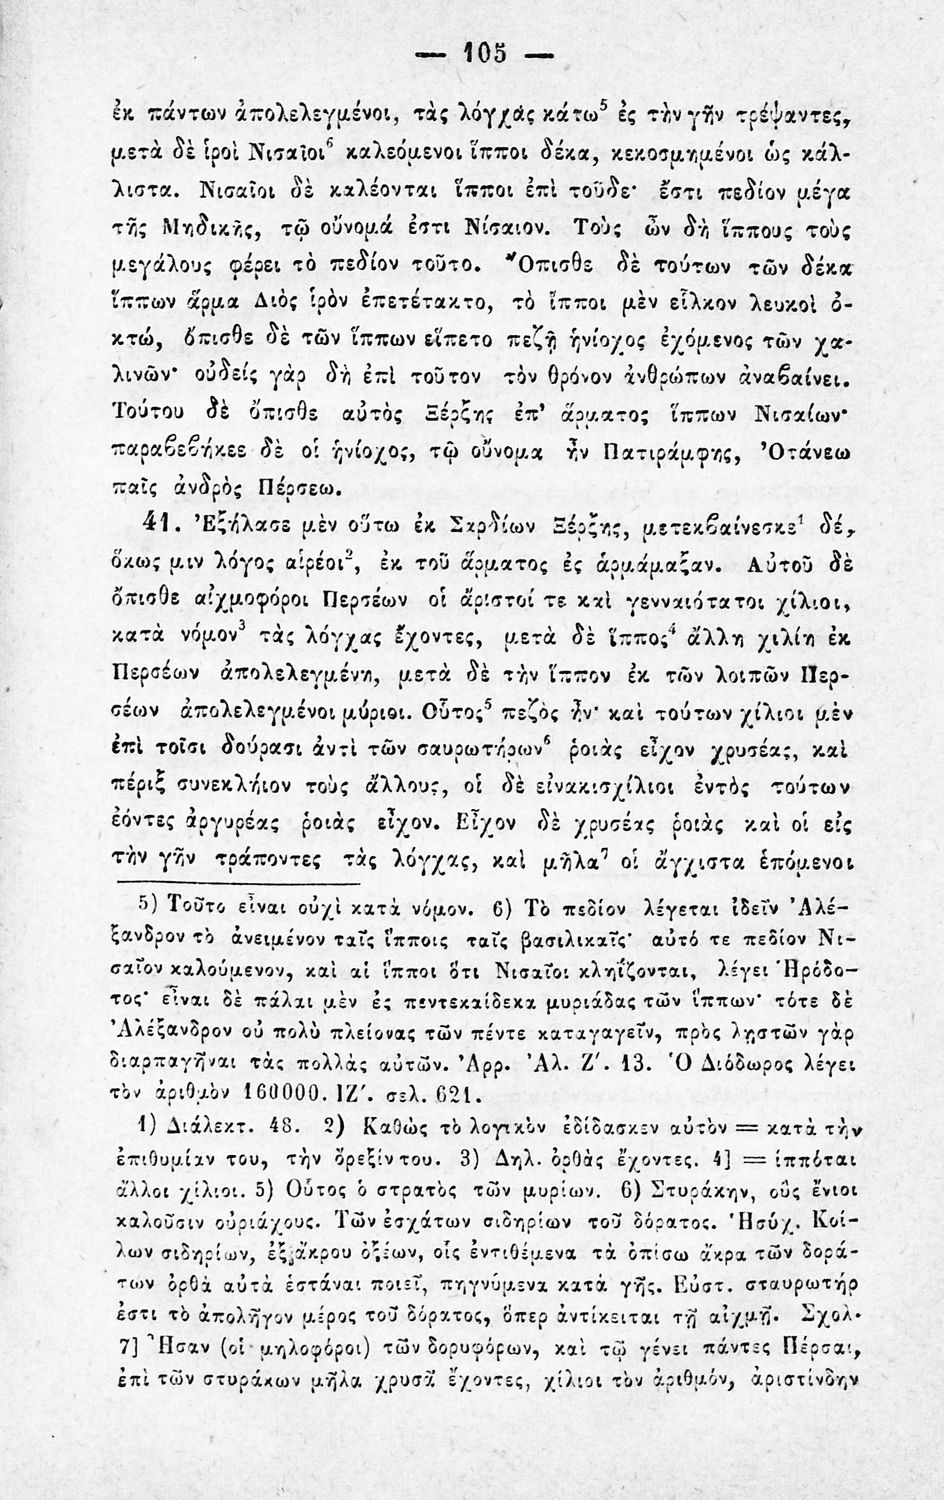 — 105 —
ἐκ πάντων ἀπολελεγμένοι, τὰς λόγχας κάτω⁵ ἐς τὴν γῆν τρέψαντες,
μετὰ δὲ ἱροὶ Νισαῖοι⁶ καλεόμενοι ἵπποι δέκα, κεκοσμημένοι ὡς κάλ-
λιστα. Νισαῖοι δὲ καλέονται ἵπποι ἐπὶ τοῦδε· ἔστι πεδίον μέγα
τῆς Μηδικῆς, τῷ οὔνομά ἐστι Νίσαιον. Τοὺς ὦν δὴ ἵππους τοὺς
μεγάλους φέρει τὸ πεδίον τοῦτο. Ὄπισθε δὲ τούτων τῶν δέκα
ἵππων ἅρμα Διὸς ἱρὸν ἐπετέτακτο, τὸ ἵπποι μὲν εἷλκον λευκοὶ ὀ-
κτώ, ὄπισθε δὲ τῶν ἵππων εἵπετο πεζῇ ἡνίοχος ἐχόμενος τῶν χα-
λινῶν· οὐδείς γὰρ δὴ ἐπὶ τοῦτον τὸν θρόνον ἀνθρώπων ἀναβαίνει.
Τούτου δὲ ὄπισθε αὐτὸς Ξέρξης ἐπ' ἅρματος ἵππων Νισαίων·
παραβεβήκεε δὲ οἱ ἡνίοχος, τῷ οὔνομα ἦν Πατιράμφης, Ὀτάνεω
παῖς ἀνδρὸς Πέρσεω.
41. Ἐξήλασε μὲν οὕτω ἐκ Σαρδίων Ξέρξης, μετεκβαίνεσκε¹ δέ,
ὅκως μιν λόγος αἱρέοι², ἐκ τοῦ ἅρματος ἐς ἁρμάμαξαν. Αὐτοῦ δὲ
ὄπισθε αἰχμοφόροι Περσέων οἱ ἄριστοί τε καὶ γενναιότατοι χίλιοι,
κατὰ νόμον³ τὰς λόγχας ἔχοντες, μετὰ δὲ ἵππος⁴ ἄλλη χιλίη ἐκ
Περσέων ἀπολελεγμένη, μετὰ δὲ τὴν ἵππον ἐκ τῶν λοιπῶν Περ-
σέων ἀπολελεγμένοι μύριοι. Οὗτος⁵ πεζὸς ἦν· καὶ τούτων χίλιοι μὲν
ἐπὶ τοῖσι δούρασι ἀντὶ τῶν σαυρωτήρων⁶ ῥοιὰς εἶχον χρυσέας, καὶ
πέριξ συνεκλήιον τοὺς ἄλλους, οἱ δὲ εἰνακισχίλιοι ἐντὸς τούτων
ἐόντες ἀργυρέας ῥοιὰς εἶχον. Εἶχον δὲ χρυσέας ῥοιὰς καὶ οἱ εἰς
τὴν γῆν τράποντες τὰς λόγχας, καὶ μῆλα⁷ οἱ ἄγχιστα ἑπόμενοι
5) Τοῦτο εἶναι οὐχὶ κατὰ νόμον. 6) Τὸ πεδίον λέγεται ἰδεῖν Ἀλέ-
ξανδρον τὸ ἀνειμένον ταῖς ἵπποις ταῖς βασιλικαῖς· αὐτό τε πεδίον Νι-
σαῖον καλούμενον, καὶ αἱ ἵπποι ὅτι Νισαῖοι κληΐζονται, λέγει Ἡρόδο-
τος· εἶναι δὲ πάλαι μὲν ἐς πεντεκαίδεκα μυριάδας τῶν ἵππων· τότε δὲ
Ἀλέξανδρον οὐ πολὺ πλείονας τῶν πέντε καταγαγεῖν, πρὸς λῃστῶν γὰρ
διαρπαγῆναι τὰς πολλὰς αὐτῶν. Ἀρρ. Ἀλ. Ζ'. 13. Ὁ Διόδωρος λέγει
τὸν ἀριθμὸν 160000. ΙΖ'. σελ. 621.
1) Διάλεκτ. 48. 2) Καθὼς τὸ λογικὸν ἐδίδασκεν αὐτὸν = κατὰ τὴν
ἐπιθυμίαν του, τὴν ὄρεξίν του. 3) Δηλ. ὀρθὰς ἔχοντες. 4] = ἱππόται
ἄλλοι χίλιοι. 5) Οὗτος ὁ στρατὸς τῶν μυρίων. 6) Στυράκην, οὓς ἔνιοι
καλοῦσιν οὐριάχους. Τῶν ἐσχάτων σιδηρίων τοῦ δόρατος. Ἡσύχ. Κοί-
λων σιδηρίων, ἐξ ἄκρου ὀξέων, οἷς ἐντιθέμενα τὰ ὀπίσω ἄκρα τῶν δορά-
των ὀρθὰ αὐτὰ ἑστάναι ποιεῖ, πηγνύμενα κατὰ γῆς. Εὐστ. σταυρωτήρ
ἐστι τὸ ἀπολῆγον μέρος τοῦ δόρατος, ὅπερ ἀντίκειται τῇ αἰχμῇ. Σχολ.
7] Ἦσαν (οἱ μηλοφόροι) τῶν δορυφόρων, καὶ τῷ γένει πάντες Πέρσαι,
ἐπὶ τῶν στυράκων μῆλα χρυσᾶ ἔχοντες, χίλιοι τὸν ἀριθμόν, ἀριστίνδην